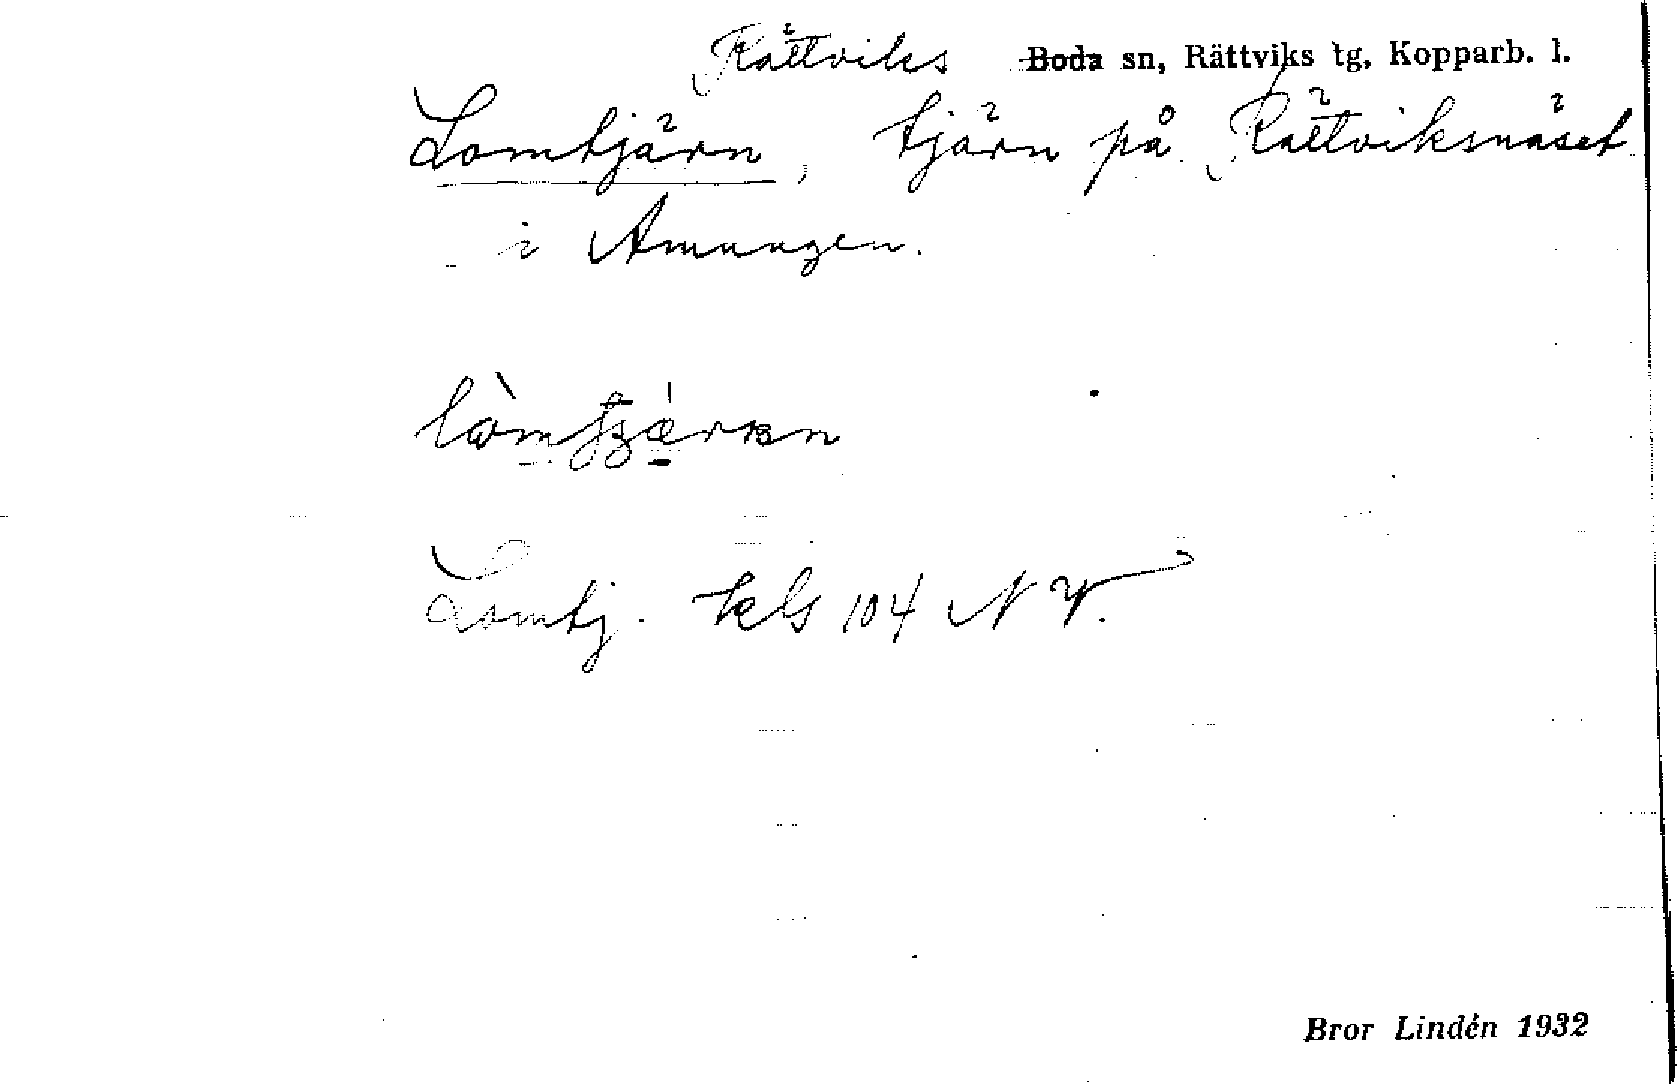 Rättviks Boda sn, Rättviks tg, Kopparb. l.
Lomtjärn, tjärn på Rättviksnäset
i Amungen.
Lomtj. kbs 104 NV.
Bror Lindén 1932